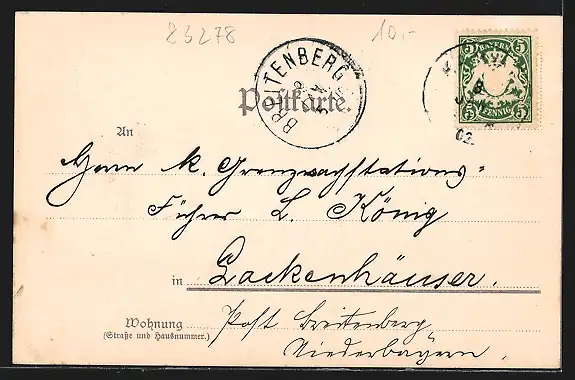 83278
10.-
BREITENBERG
BAYERN
5 5
PFENNIG
8
02.
Postkarte.
An
Herrn k. Grenzwachstations=
Führer L. König
in Lackenhäuser.
Wohnung Post Breitenberg,
(Straße und Hausnummer.)
Niederbayern.